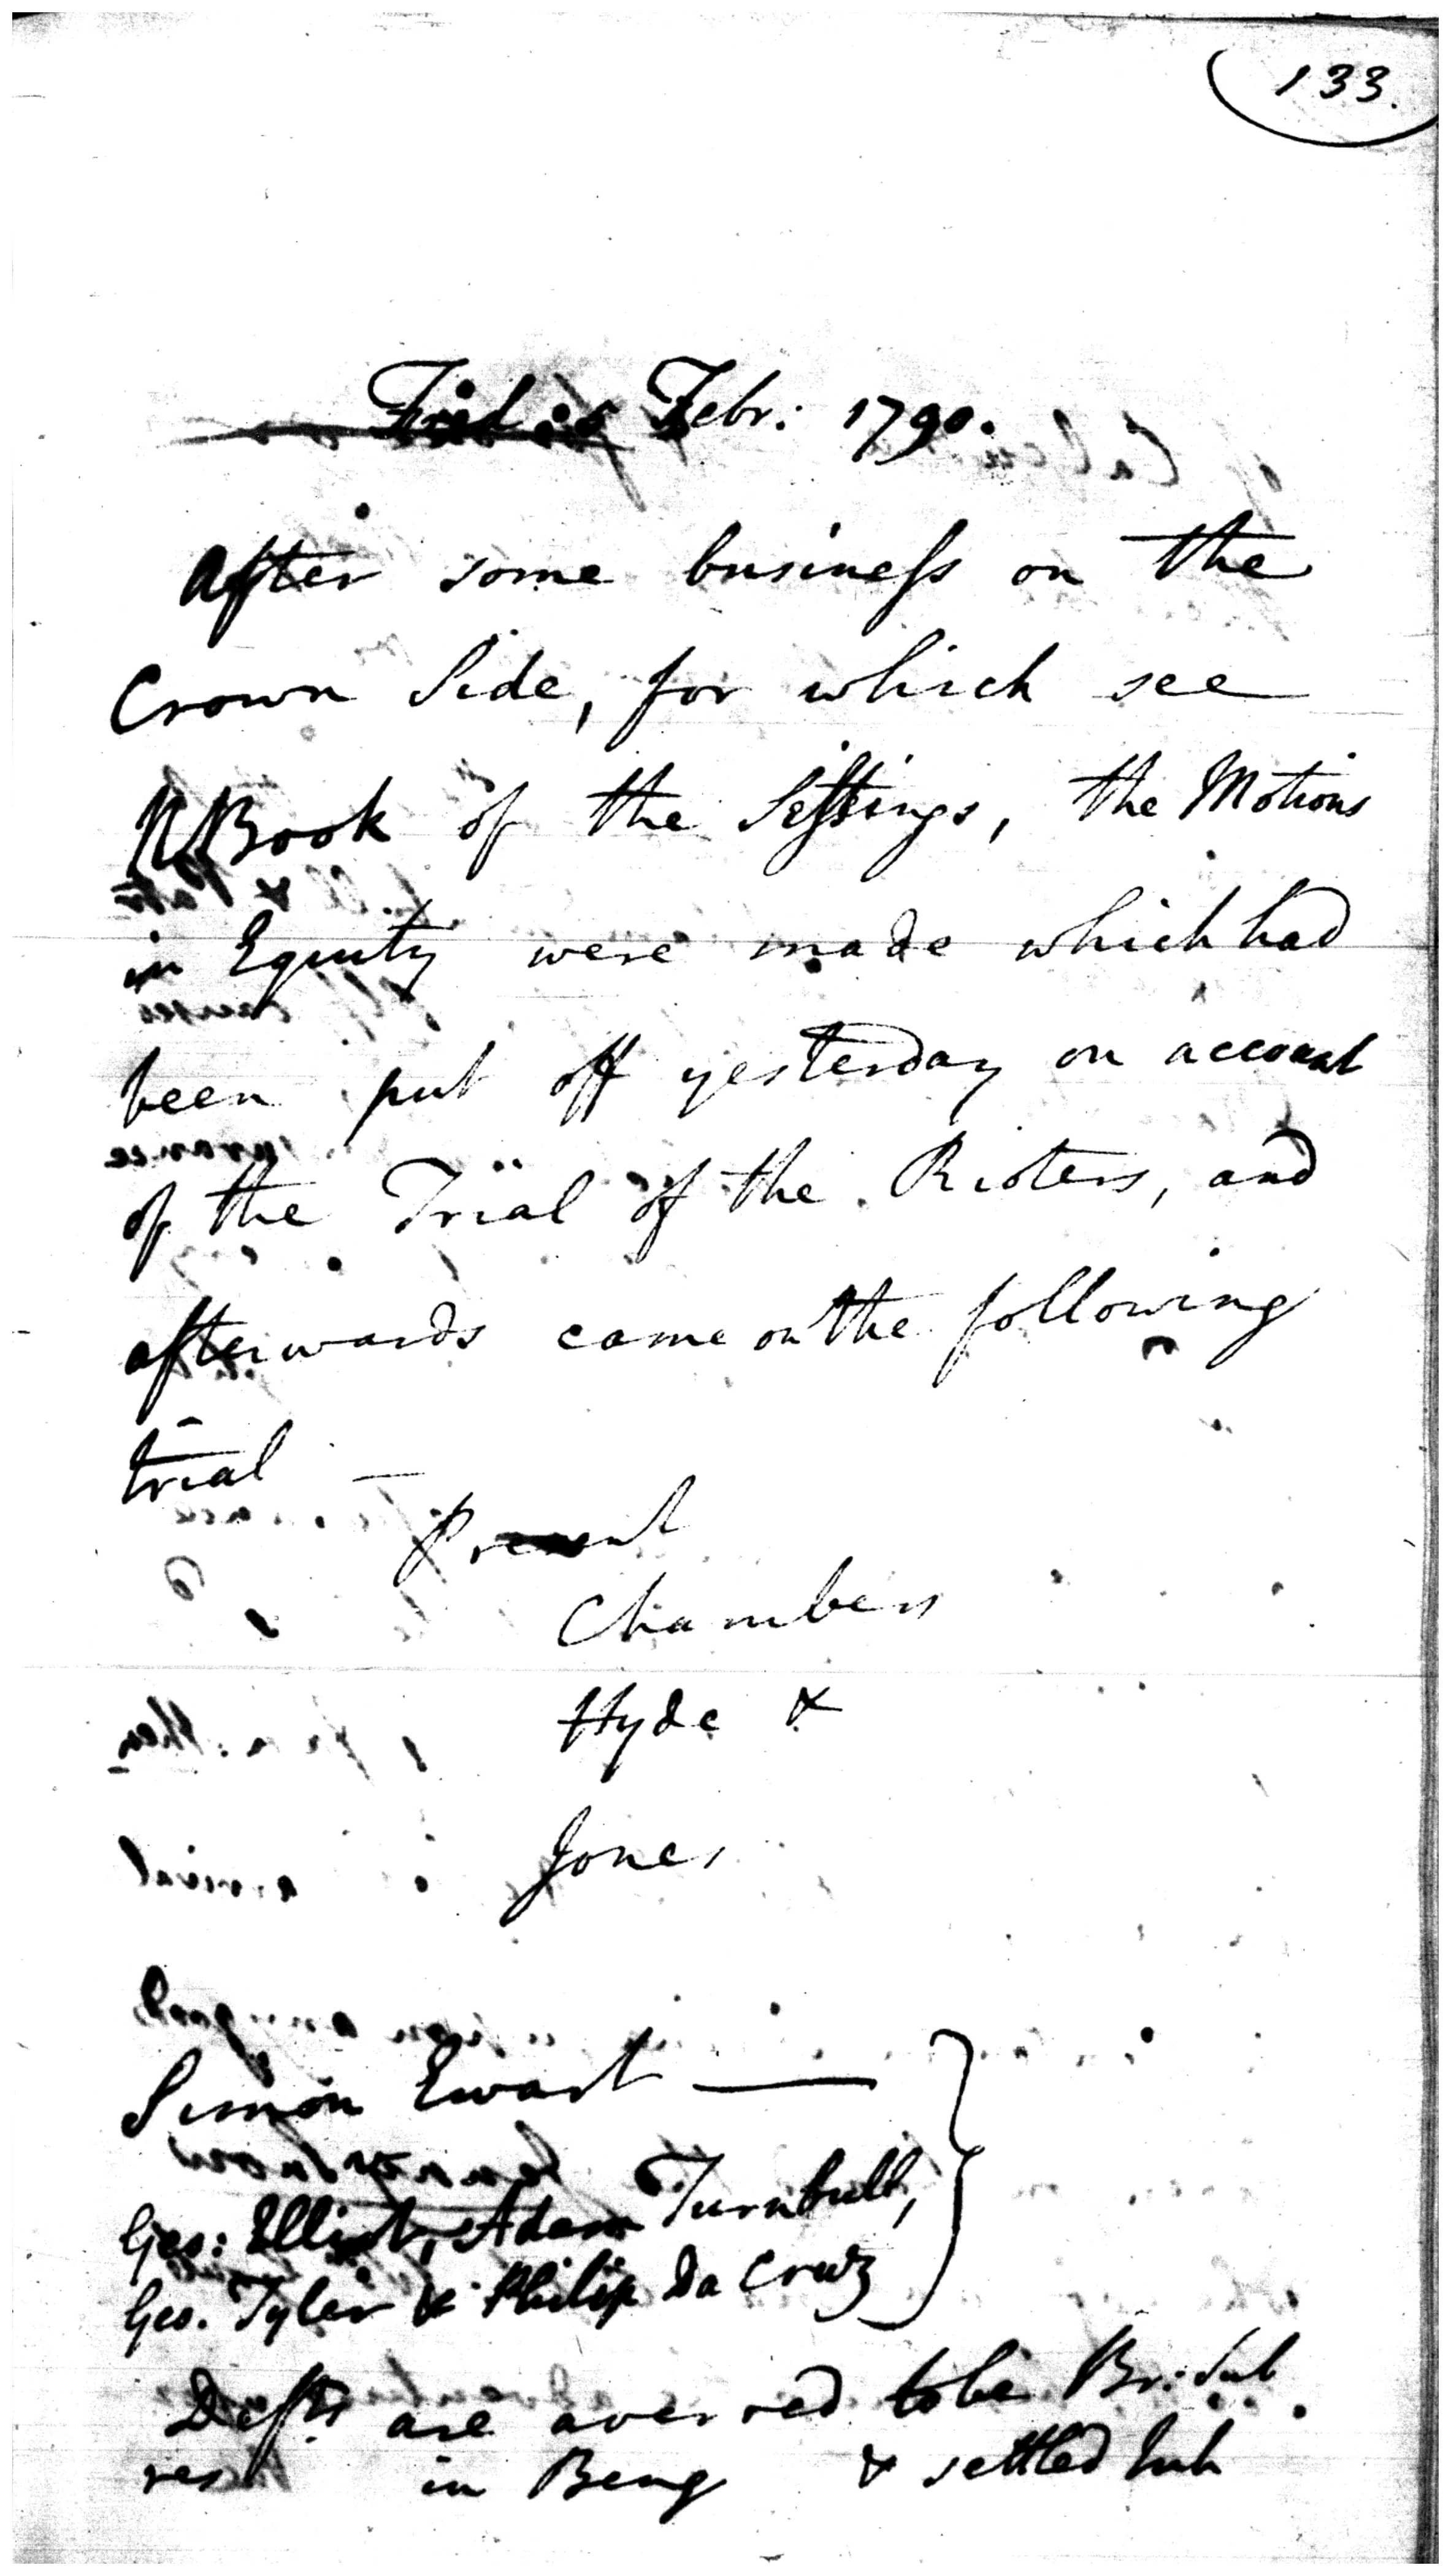 133.
Frid: 5 Febr: 1790.
After some business on the
Crown Side, for which see
Book of the Sittings, the Motions
in Equity were made which had
been put off yesterday on account
of the Trial of the Rioters, and
afterwards came on the following
trial —
Present
Chambers
Hyde &
Jones
Simon Ewart —
Geo: Elliot, Adam Turnbull,
Geo. Tyler & Philip Da Cruz
Defts are averred to be Br: Sub
res in Beng & settled Inh